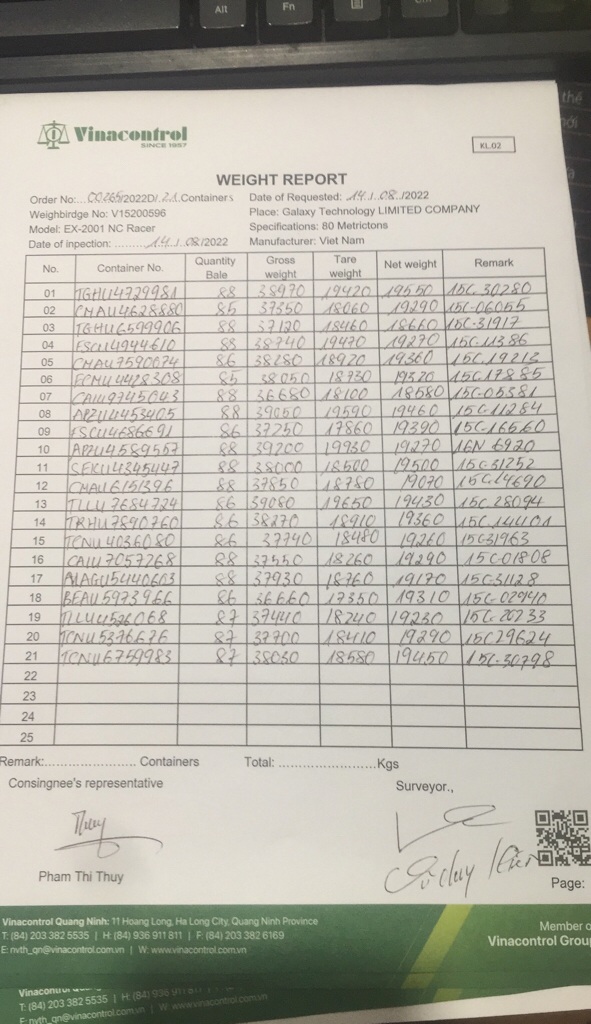 Alt
Fn
Vinacontrol
SINCE 1957
KL.02
WEIGHT REPORT
Order No:... 00265/2022DI. 21. Containers Date of Requested: .14./.08./2022
Weighbirdge No: V15200596 Place: Galaxy Technology LIMITED COMPANY
Model: EX-2001 NC Racer Specifications: 80 Metrictons
Date of inpection: .........14./.08/2022 Manufacturer: Viet Nam
No. Container No. Quantity Bale Gross weight Tare weight Net weight Remark
01 TGHU4729981 88 38970 19420 19550 15C-30280
02 CMAU4628880 85 37350 18060 19290 15C-06055
03 TGHU6599906 88 37120 18460 18660 15C-31917
04 FSCU4944610 88 38740 19470 19270 15C-11386
05 CMAU7590674 86 38280 18920 19360 15C.19213
06 ECMU4428308 85 38050 18730 19320 15C17885
07 CAIU9745043 88 36680 18100 18580 15C-05381
08 APZU4453405 88 39050 19590 19460 15C-11284
09 FSCU4686691 86 37250 17860 19390 15C-16560
10 APZU4589557 88 39200 19930 19270 16N 6920
11 SEKU4345447 88 38000 18500 19500 15C-31252
12 CMAU6151396 88 37850 18780 19070 15C14690
13 TLLU7684724 86 39080 19650 19430 15C.28094
14 TRHU7890760 86 38270 18910 19360 15C.14401
15 TCNU4036080 86 37740 18480 19260 15C31963
16 CAIU7057268 88 37550 18260 19290 15C-01808
17 MAGU5440603 88 37930 18760 19170 15C31128
18 BEAU5973966 86 36660 17350 19310 15C-02940
19 TLLU4526068 87 37440 18240 19230 15C-20733
20 TCNU5376676 87 37700 18410 19290 15C29624
21 TCNU6759983 87 38030 18580 19450 15C-30798
22
23
24
25
Remark:........................ Containers Total: ..........................Kgs
Consingnee's representative Surveyor.,
Thuy
Pham Thi Thuy
Page:
Vinacontrol Quang Ninh: 11 Hoang Long, Ha Long City, Quang Ninh Province
T: (84) 203 382 5535 | H: (84) 936 911 811 | F: (84) 203 382 6169
E: nvth_qn@vinacontrol.com.vn | W: www.vinacontrol.com.vn
Member o
Vinacontrol Group
T: (84) 203 382 5535 | H: (84) 936 911 811
E: nvth_qn@vinacontrol.com.vn | W: www.vinacontrol.com.vn